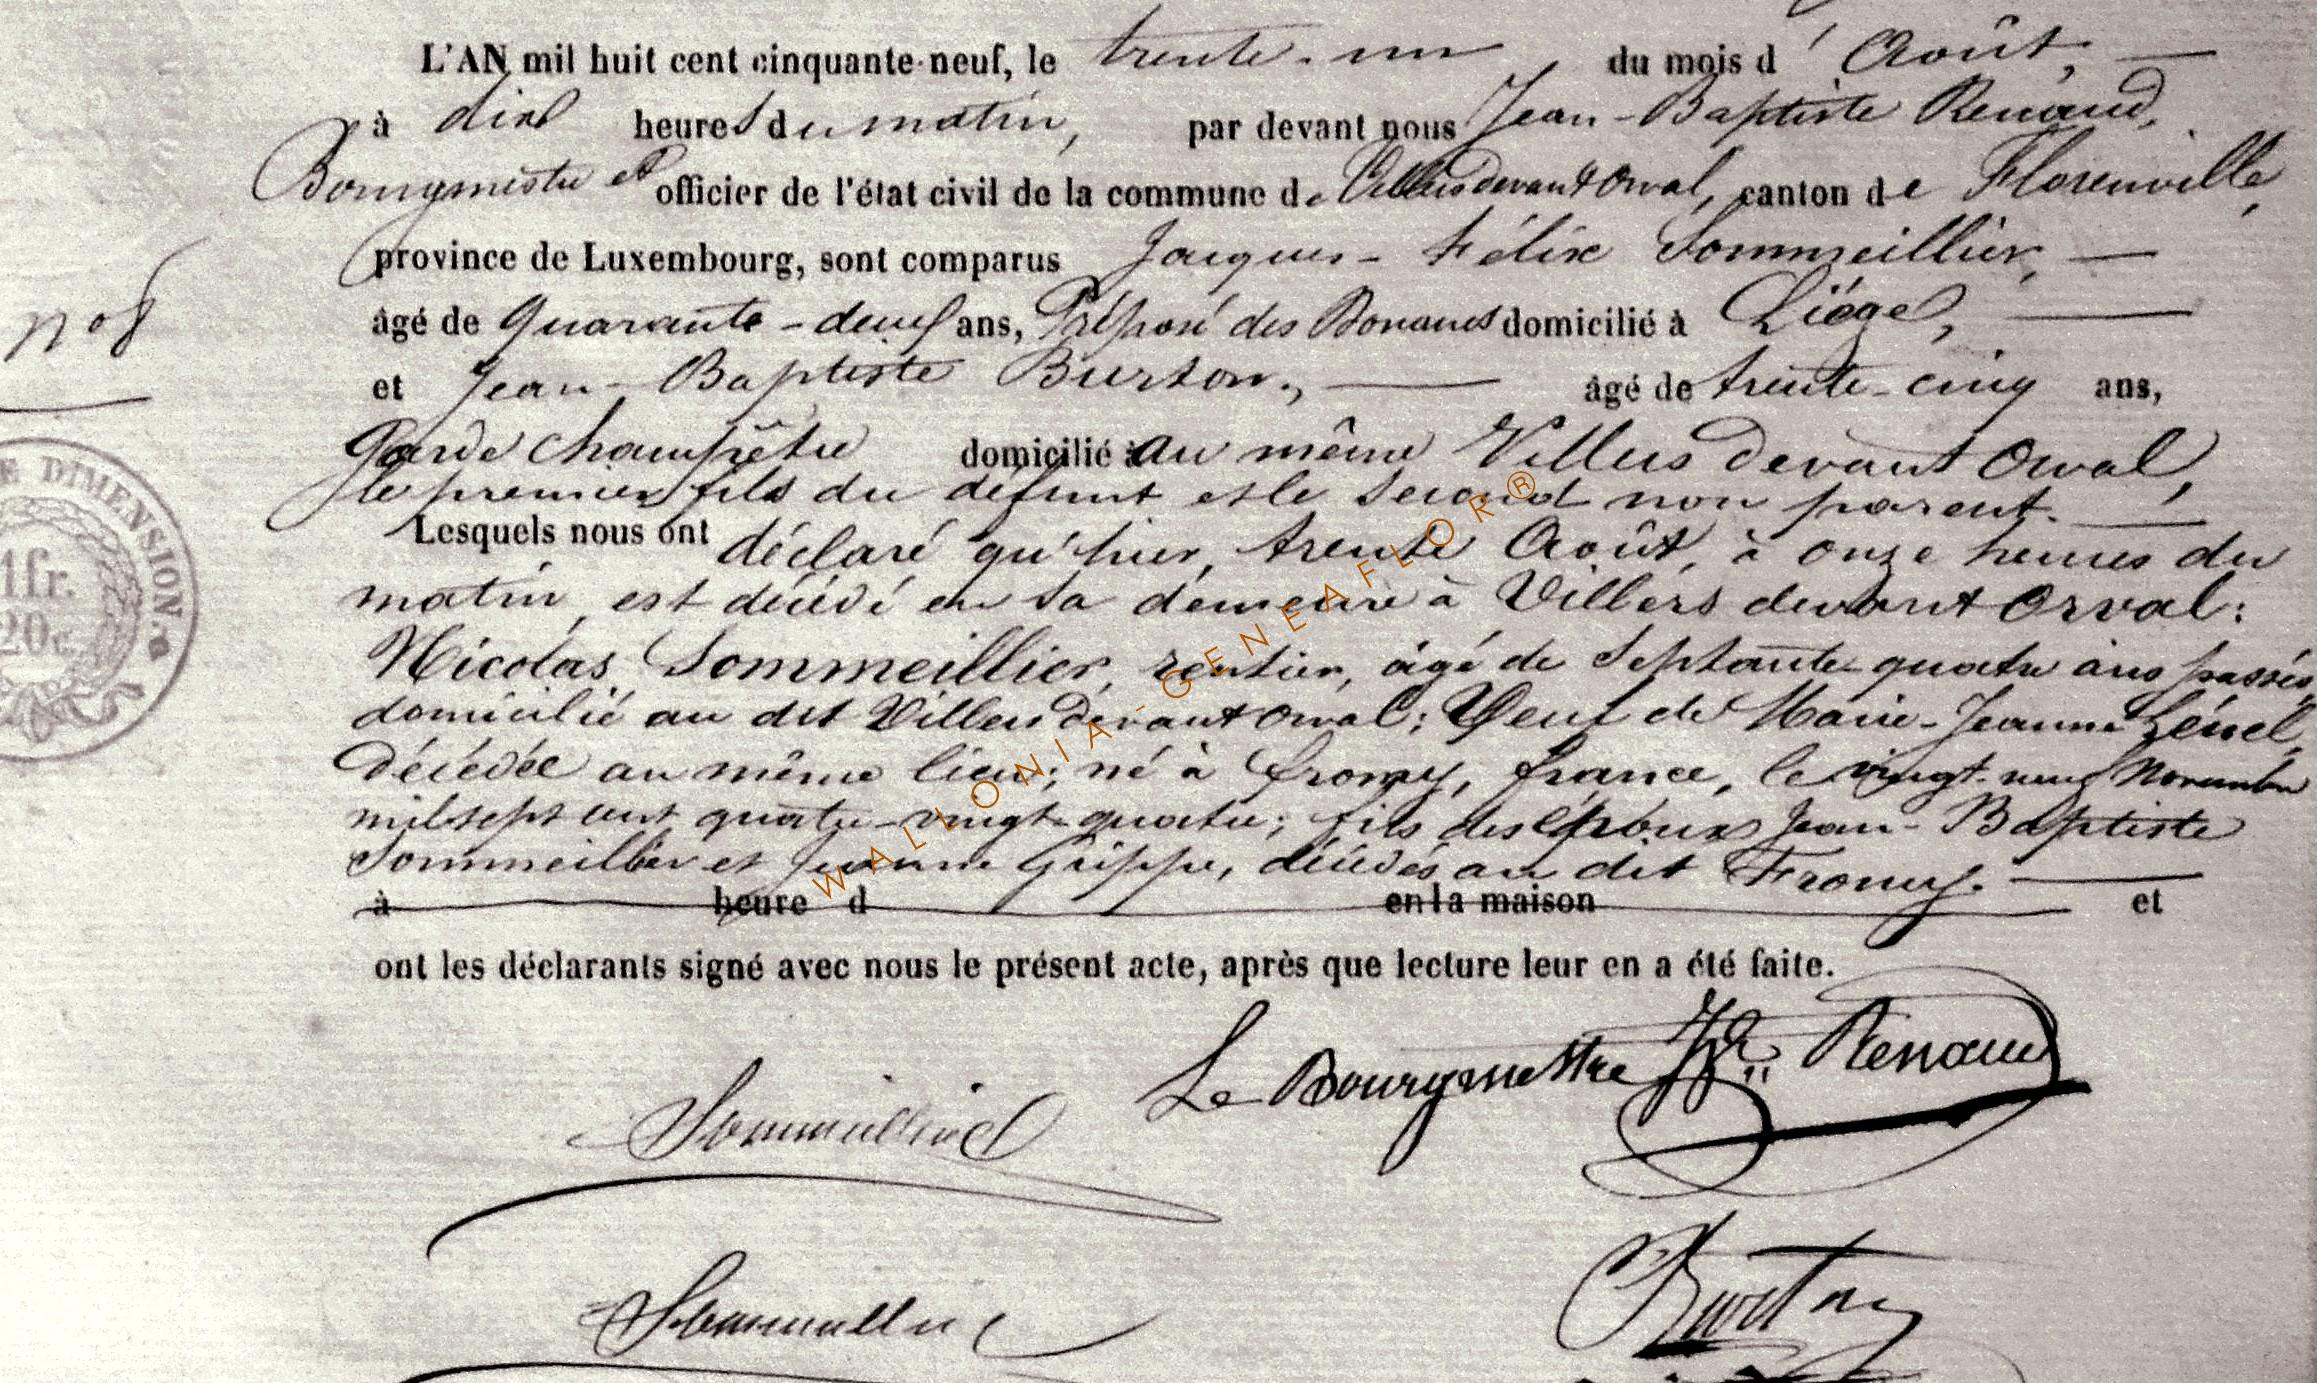 L'AN mil huit cent cinquante-neuf, le trente-un du mois d'Août,
à dix heures du matin, par devant nous Jean-Baptiste Renaud,
Bourgmestre et officier de l'état civil de la commune de Villers devant Orval, canton de Florenville,
province de Luxembourg, sont comparus Jacques-Félix Sommeillier,
n° 8
âgé de quarante-deux ans, Préposé des Douanes domicilié à Liége,
et Jean-Baptiste Burton, âgé de trente-cinq ans,
Garde champêtre domicilié à au même Villers devant Orval,
le premier fils du défunt et le second non parent.
Lesquels nous ont déclaré qu'hier, trente Août, à onze heures du
matin, est décédé en sa demeure à Villers devant Orval:
Nicolas Sommeillier, rentier, âgé de septante-quatre ans passés,
domicilié au dit Villers devant Orval; Veuf de Marie-Jeanne
Décédée au même lieu; né à fromy, france, le vingt-neuf Novembre
mil sept cent quatre-vingt-quatre; fils des époux Jean-Baptiste
Sommeillier et Jeanne Grippe, décédés au dit Fromy.
à heure d en la maison et
ont les déclarants signé avec nous le présent acte, après que lecture leur en a été faite.
Le Bourgmestre Renaud
Sommeillier
Sommeillier Burton
DIMENSION.
1 fr.
20 c.
WALLONIA-GENEAFLOR®